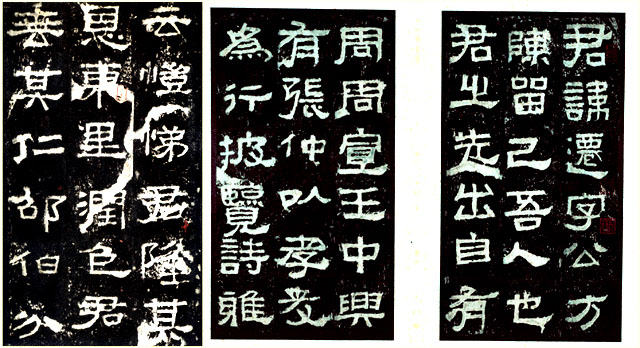 君諱遷字公方
陳留己吾人也
君之先出自有
周周宣王中興
有張仲以孝友
為行披覽詩雅
云愷悌君隆其
恩東里潤色君
垂其仁邵伯分